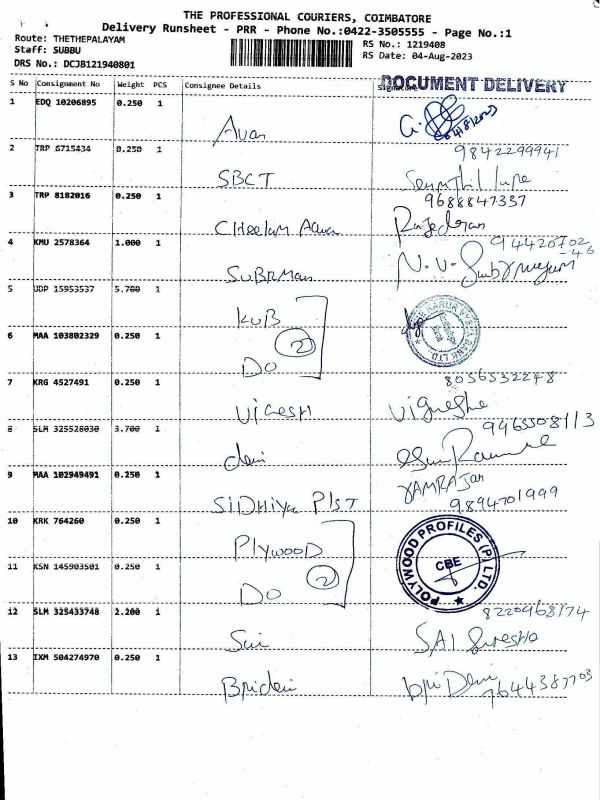 THE PROFESSIONAL COURIERS, COIMBATORE
Delivery Runsheet - PRR - Phone No.:0422-3505555 - Page No.:1
Route: THETHEPALAYAM
RS No.: 1219408
Staff: SUBBU
RS Date: 04-Aug-2023
DRS No.: DCJB121940801
DOCUMENT DELIVERY
S No Consignment No Weight PCS Consignee Details Signature
1 EDQ 10206895 0.250 1
04/8/2023
2 TRP 5715434 0.250 1 SBCT
9842299941
3 TRP 8182016 0.250 1
9688847337
4 KMU 2578364 1.000 1 SUBRMan
94420702
-46
5 UDP 15953537 5.700 1 KUB
2
6 MAA 103802329 0.250 1 DO
7 KRG 4527491 0.250 1 VIGESH
8056532248
8 SLM 325528030 3.700 1 devi
9 MAA 102949491 0.250 1 SIDHIya PlST
9894701999
10 KRK 764260 0.250 1 PLYWOOD
2
POLYWOOD PROFILES (P) LTD.
CBE
11 KSN 145903501 0.250 1 DO
12 SLM 325433748 2.200 1 Sai SAI Suresha
8220468174
13 IXM 504274970 0.250 1
7644387703